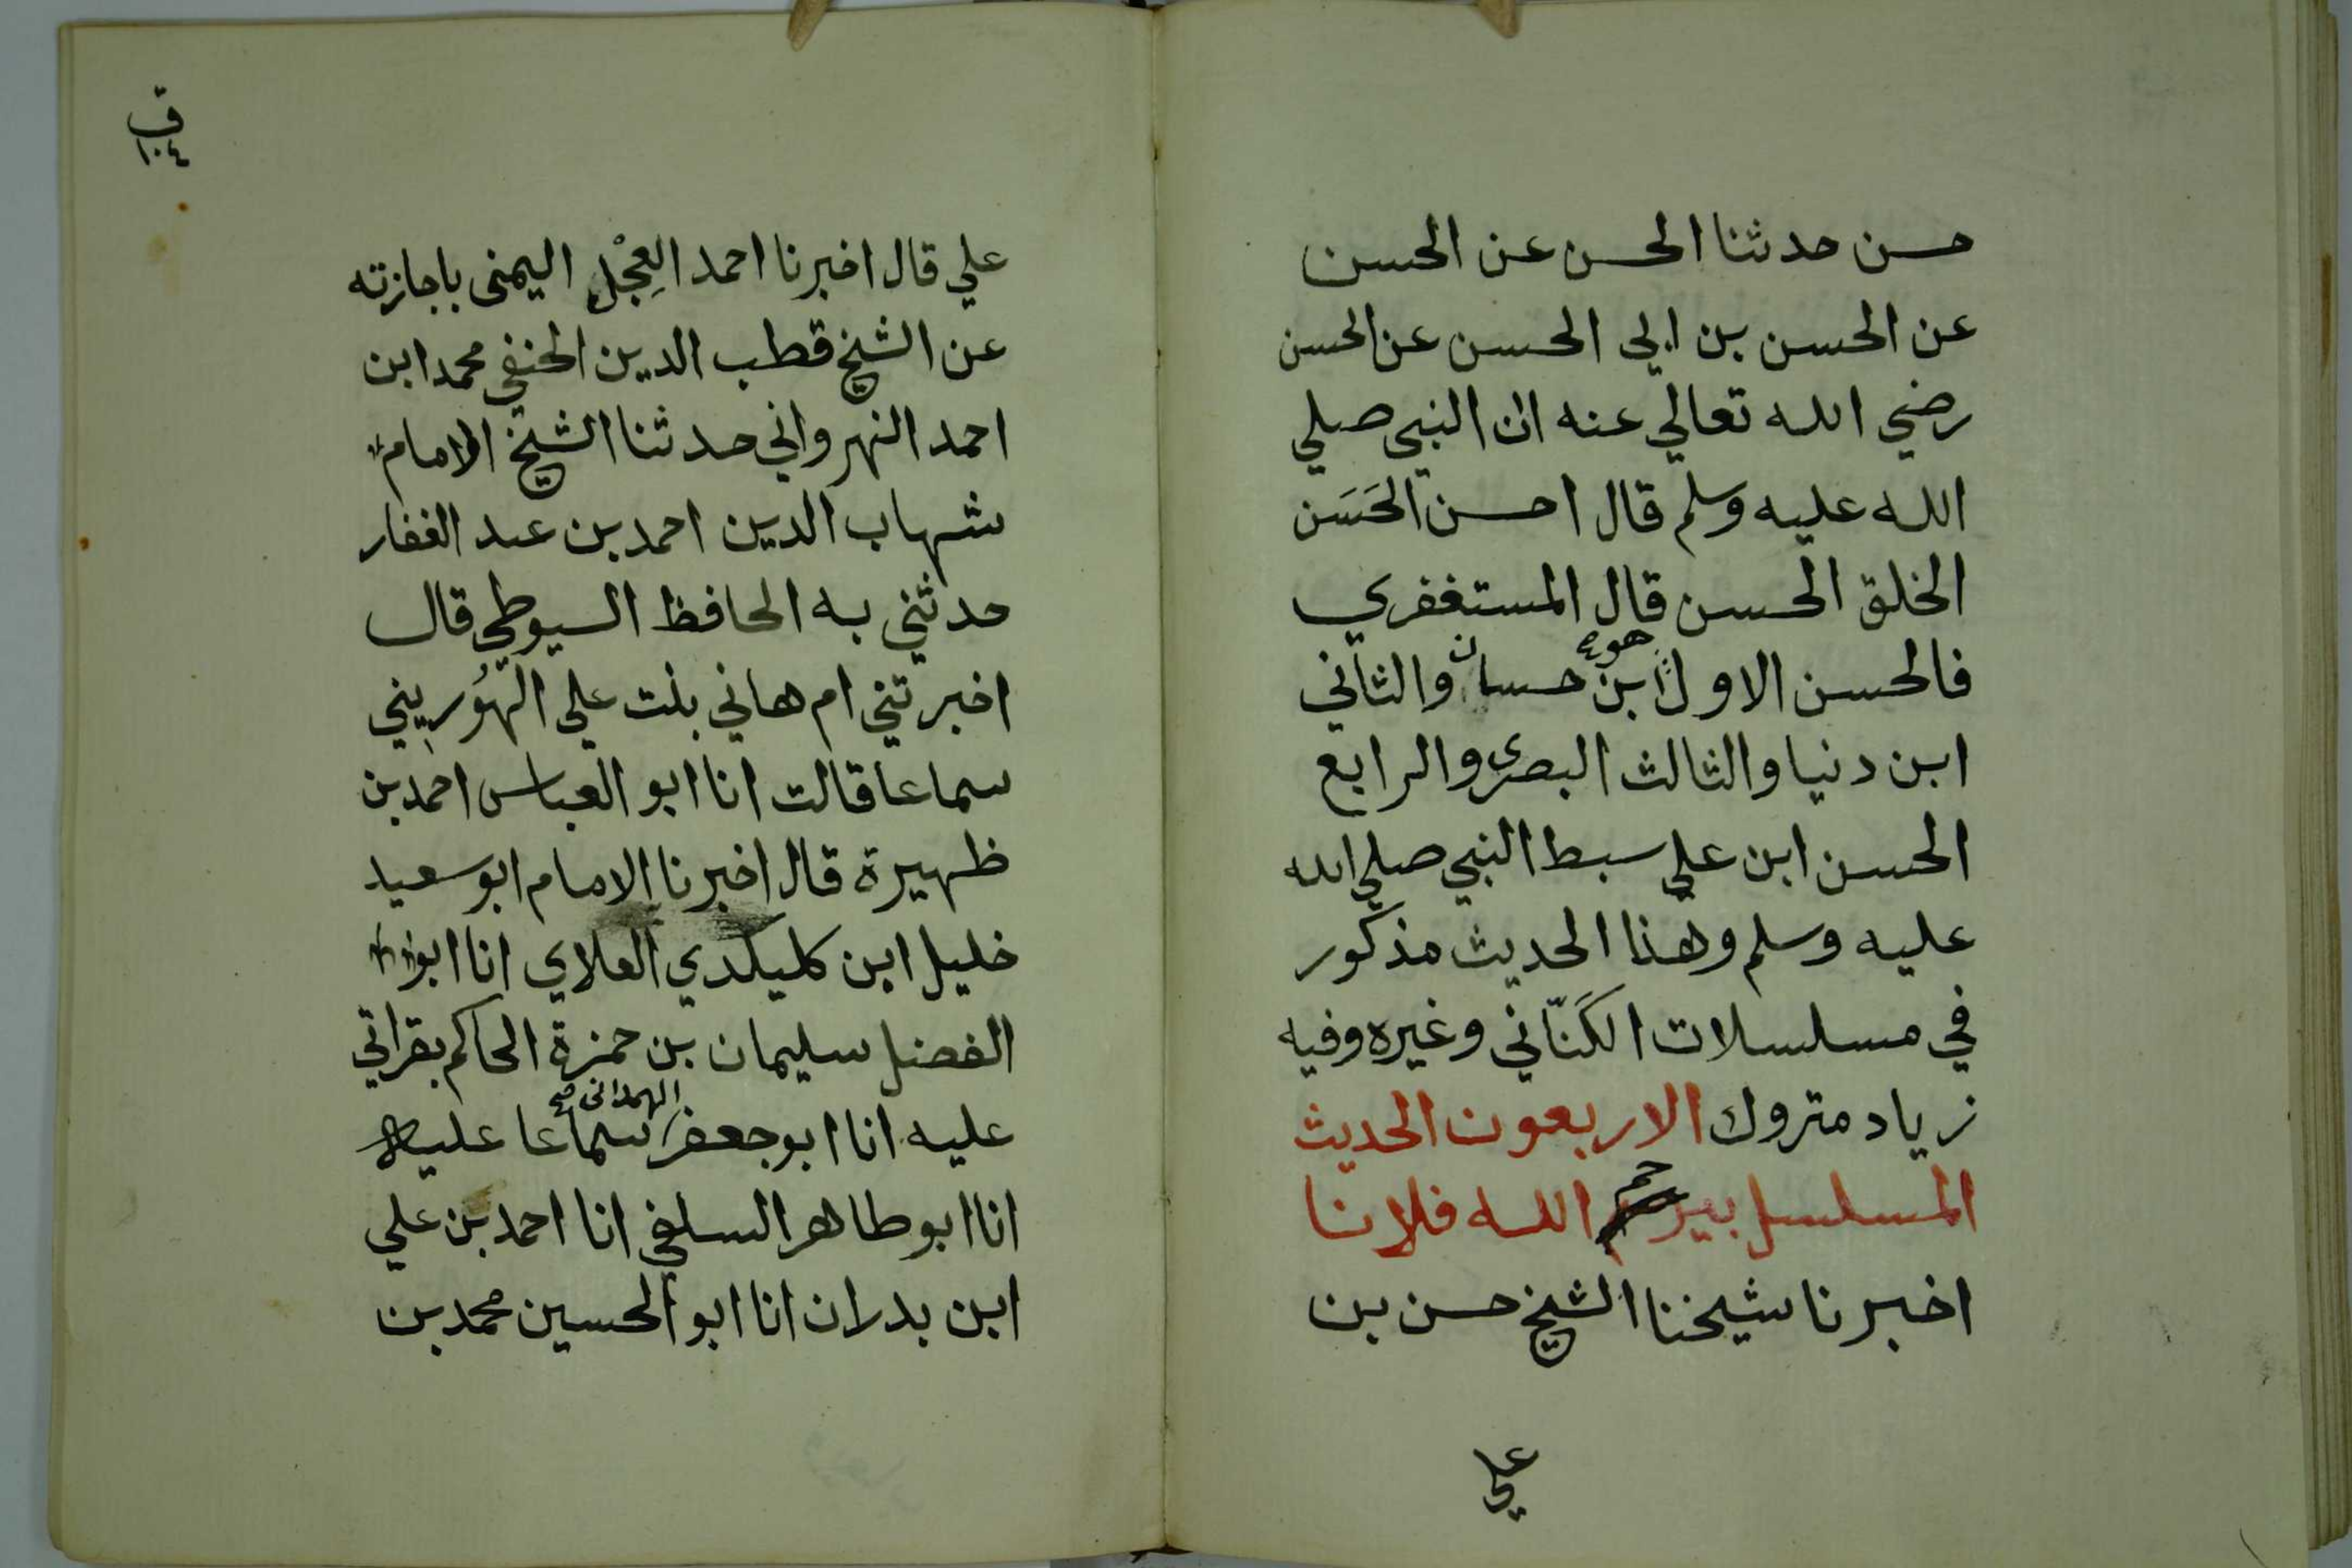 حسن حدثنا الحسن عن الحسن
عن الحسن بن ابي الحسن عن الحسن
رضي الله تعالي عنه ان النبي صلي
الله عليه وسلم قال احسن الحَسَن
الخلق الحسن قال المستغفري
فالحسن الاول هو ابن حسان والثاني
ابن دنيا والثالث البصرى والرابع
الحسن ابن علي سبط النبي صلي الله
عليه وسلم وهذا الحديث مذكور
في مسلسلات الكَتّاني وغيره وفيه
زياد متروك الاربعون الحديث
المسلسل بيرحم الله فلانا
اخبرنا شيخنا الشيخ حسن بن
علي
ق
١٠٤
علي قال اخبرنا احمد العِجْل اليمنى باجازته
عن الشيخ قطب الدين الحنفي محمد ابن
احمد النهرواني حدثنا الشيخ الامام
شهاب الدين احمد بن عبد الغفار
حدثني به الحافظ السيوطي قال
اخبرتني ام هاني بنت علي الهُورِيني
سماعا قالت انا ابو العباس احمد بن
ظهيرة قال اخبرنا الامام ابو سعيد
خليل ابن كليكدي العلاي انا ابو
الفضل سليمان بن حمزة الحاكم بقراتي
عليه انا ابو جعفر الهمدانى صح سماعا عليه
انا ابو طاهر السلفي انا احمد بن علي
ابن بدران انا ابو الحسين محمد بن